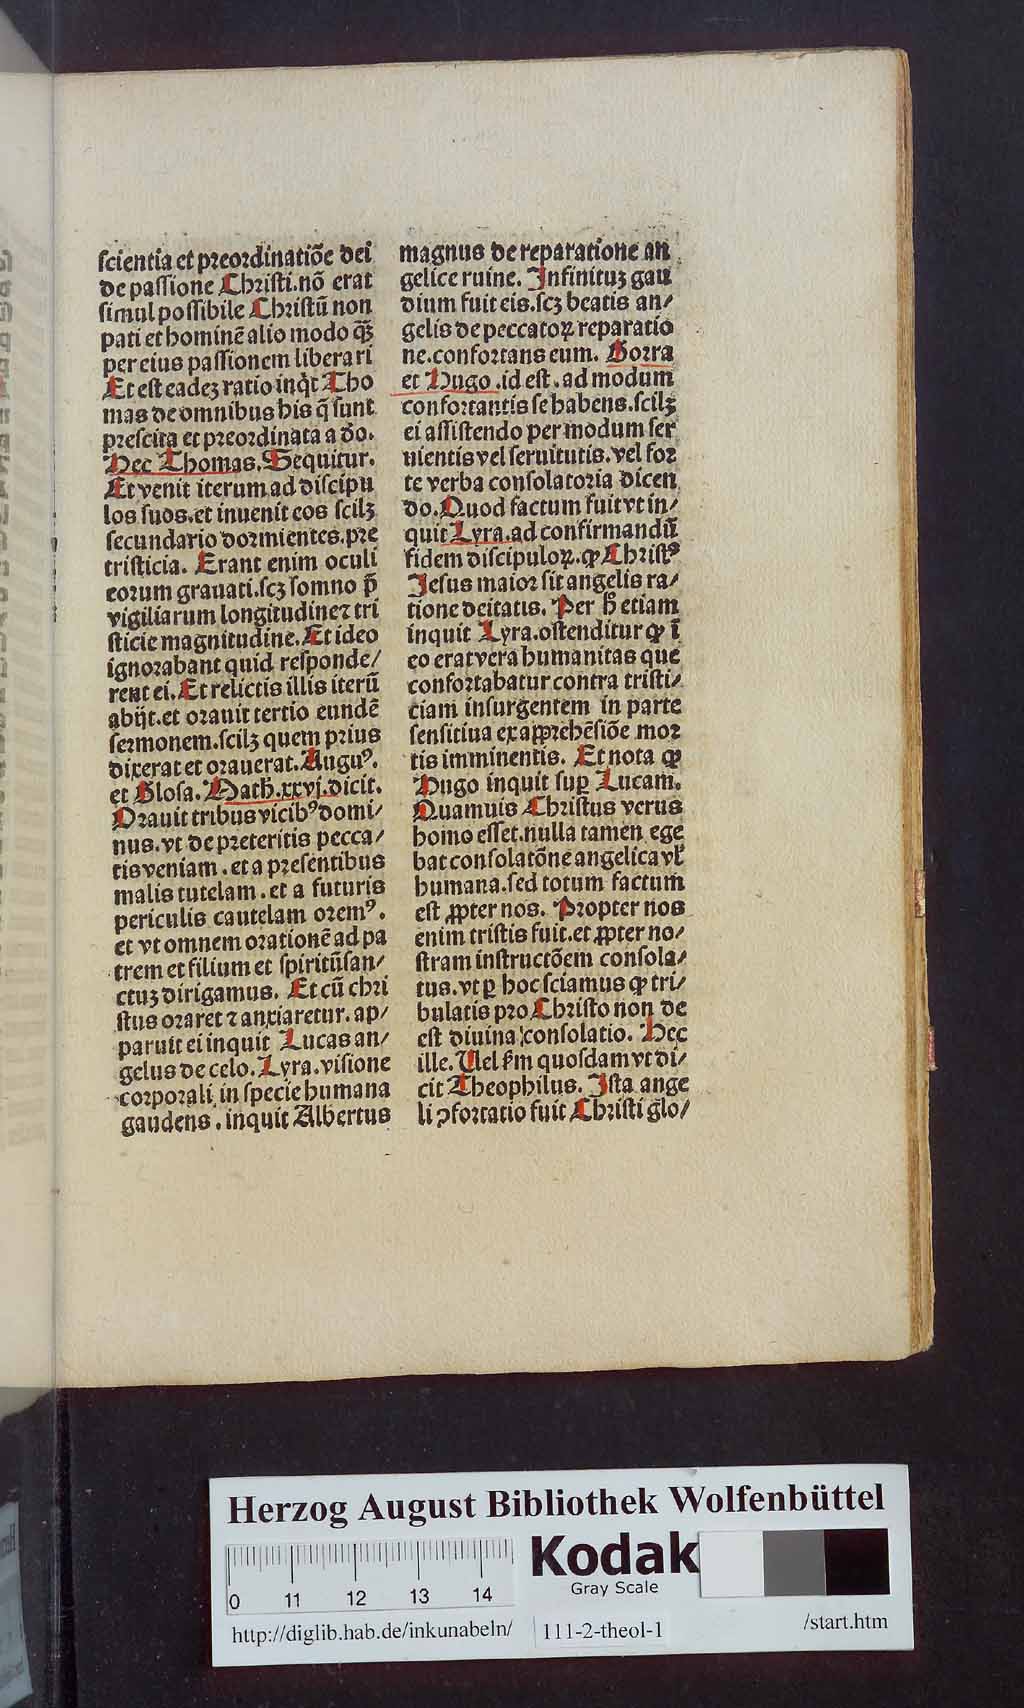 scientia et preordinatiōe dei
de passione Christi.nō erat
simul possibile Christū non
pati et hominē alio modo qꝫ
per eius passionem liberari
Et est eadeꝫ ratio inq̇t Tho
mas de omnibus his q̄ sunt
prescita et preordinata a dō.
Hec Thomas. Sequitur.
Et venit iterum ad discipu
los suos.et inuenit eos scilꝫ
secundario dormientes.pre
tristicia. Erant enim oculi
eorum grauati.scꝫ somno p̄
vigiliarum longitudine ⁊ tri
sticie magnitudine. Et ideo
ignorabant quid responde/
rent ei. Et relictis illis iterū
abijt.et orauit tertio eundē
sermonem.scilꝫ quem prius
dixerat et orauerat. Auguꝰ.
et Glosa. Math̄.xxvj.dicit.
Orauit tribus vicibꝰ domi/
nus.vt de preteritis pecca/
tis veniam.et a presentibus
malis tutelam.et a futuris
periculis cautelam oremꝰ.
et vt omnem orationē ad pa
trem et filium et spiritūsan/
ctuꝫ dirigamus. Et cū chri
stus oraret ⁊ anxiaretur.ap/
paruit ei inquit Lucas an/
gelus de celo. Lyra.visione
corporali in specie humana
gaudens.inquit Albertus
magnus de reparatione an
gelice ruine. Infinituꝫ gau
dium fuit eis.scꝫ beatis an/
gelis de peccatoꝝ reparatio
ne.confortans eum. Gorra
et Hugo.id est.ad modum
confortantis se habens.scilꝫ
ei assistendo per modum ser
uientis vel seruitutis.vel for
te verba consolatoria dicen
do. Quod factum fuit vt in/
quit Lyra.ad confirmandū
fidem discipuloꝝ.ꝙ Christꝰ
Jesus maior sit angelis ra/
tione deitatis. Per h̄ etiam
inquit Lyra.ostenditur ꝙ ī
eo erat vera humanitas que
confortabatur contra tristi/
ciam insurgentem in parte
sensitiua ex apprehēsiōe mor
tis imminentis. Et nota ꝙ
Hugo inquit suꝑ Lucam.
Quamuis Christus verus
homo esset.nulla tamen ege
bat consolatōne angelica vl̄
humana.sed totum factum
est ꝓpter nos. Propter nos
enim tristis fuit.et ꝓpter no/
stram instructōem consola/
tus.vt ꝑ hoc sciamus ꝙ tri/
bulatis pro Christo non de
est diuina consolatio. Hec
ille. Uel ẜm quosdam vt di/
cit Theophilus. Ista ange
li ꝯfortatio fuit Christi glo/
Herzog August Bibliothek Wolfenbüttel
0 11 12 13 14
Kodak
Gray Scale
http://diglib.hab.de/inkunabeln/ 111-2-theol-1 /start.htm